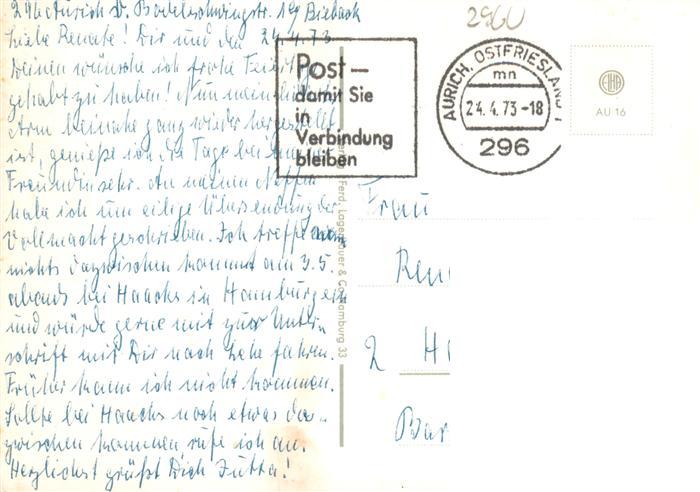 296 Aurich v. Bodelschwingstr. 19 Biebach
2960
Liebe Renate! Dir und den 24.4.73
Deinen wünsche ich frohe Feiertage
gehabt zu haben! Nun mein
Arm beinahe ganz wieder hergestellt
ist, genieße ich die Tage bei meiner
Freundin sehr. An meinen Neffen
habe ich um eilige Übersendung der
Vollmacht geschrieben. Ich treffe wenn
nichts dazwischen kommt am 3.5.
abends bei Haacks in Hamburg ein
und würde gerne mit zur Unter-
schrift mit Dir nach Lehe fahren.
Früher kann ich nicht kommen.
Sollte bei Haacks noch etwas da-
zwischen kommen rufe ich an.
Herzlichst grüßt Dich Jutta!
Post –
damit Sie
in
Verbindung
bleiben
AURICH, OSTFRIESLAND 1
mn
24.4.73-18
296
AU 16
Ferd. Lagerbauer & Co. Hamburg 33
Frau
Ren
2 H
Bar